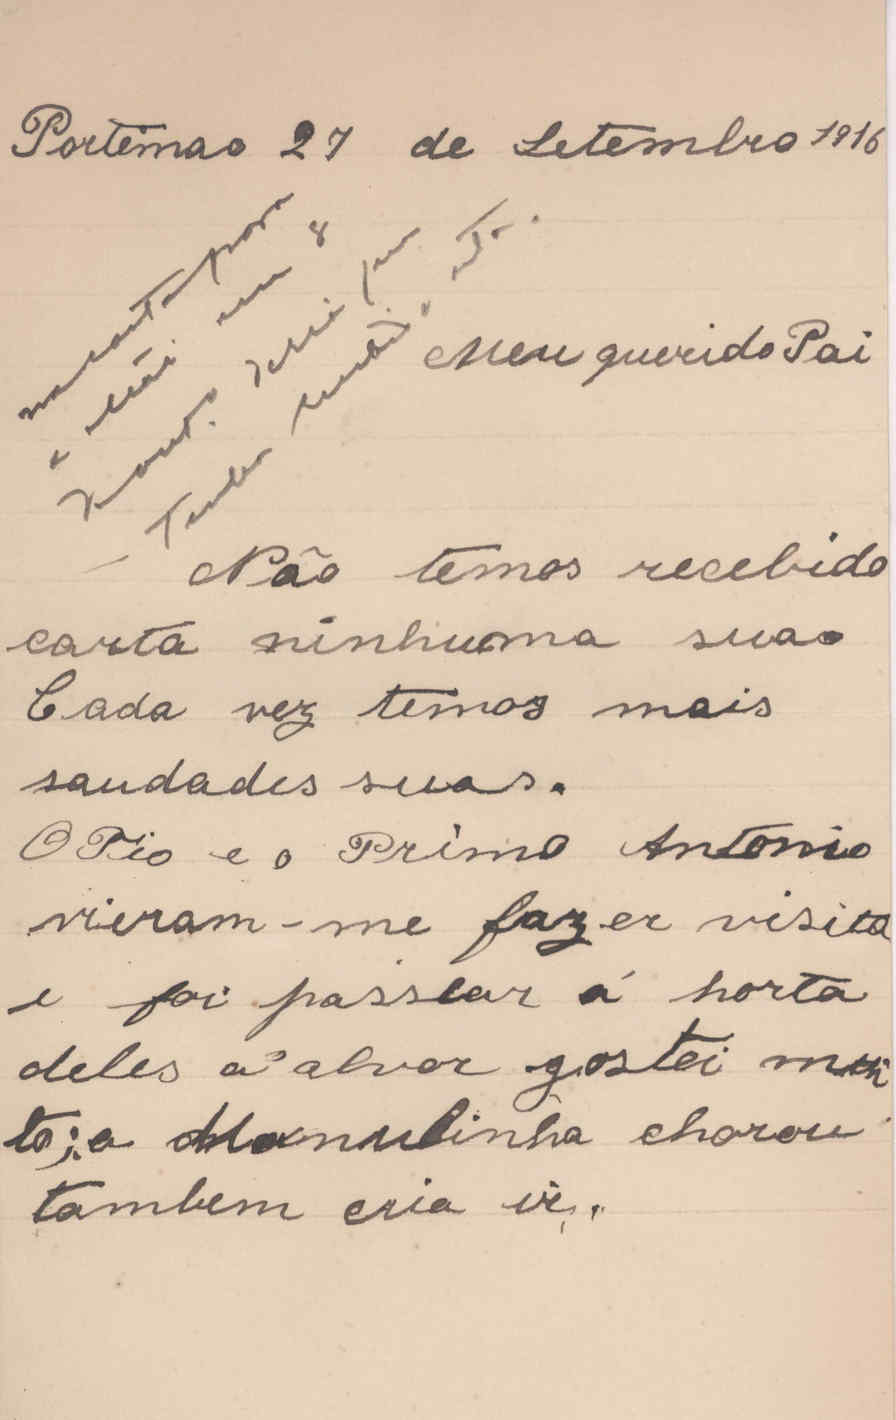 Portimao 27 de Setembro 1916
na carta para
a mãi
Meu querido Pai
Não temos recebido
carta ninhuma sua
Cada vez temos mais
saudades suas.
O Tio e o Primo Antonio
vieram-me fazer visita
e foi passear á horta
deles a alvor gostei mui
to; a Manulinha chorou
tambem cria ir.